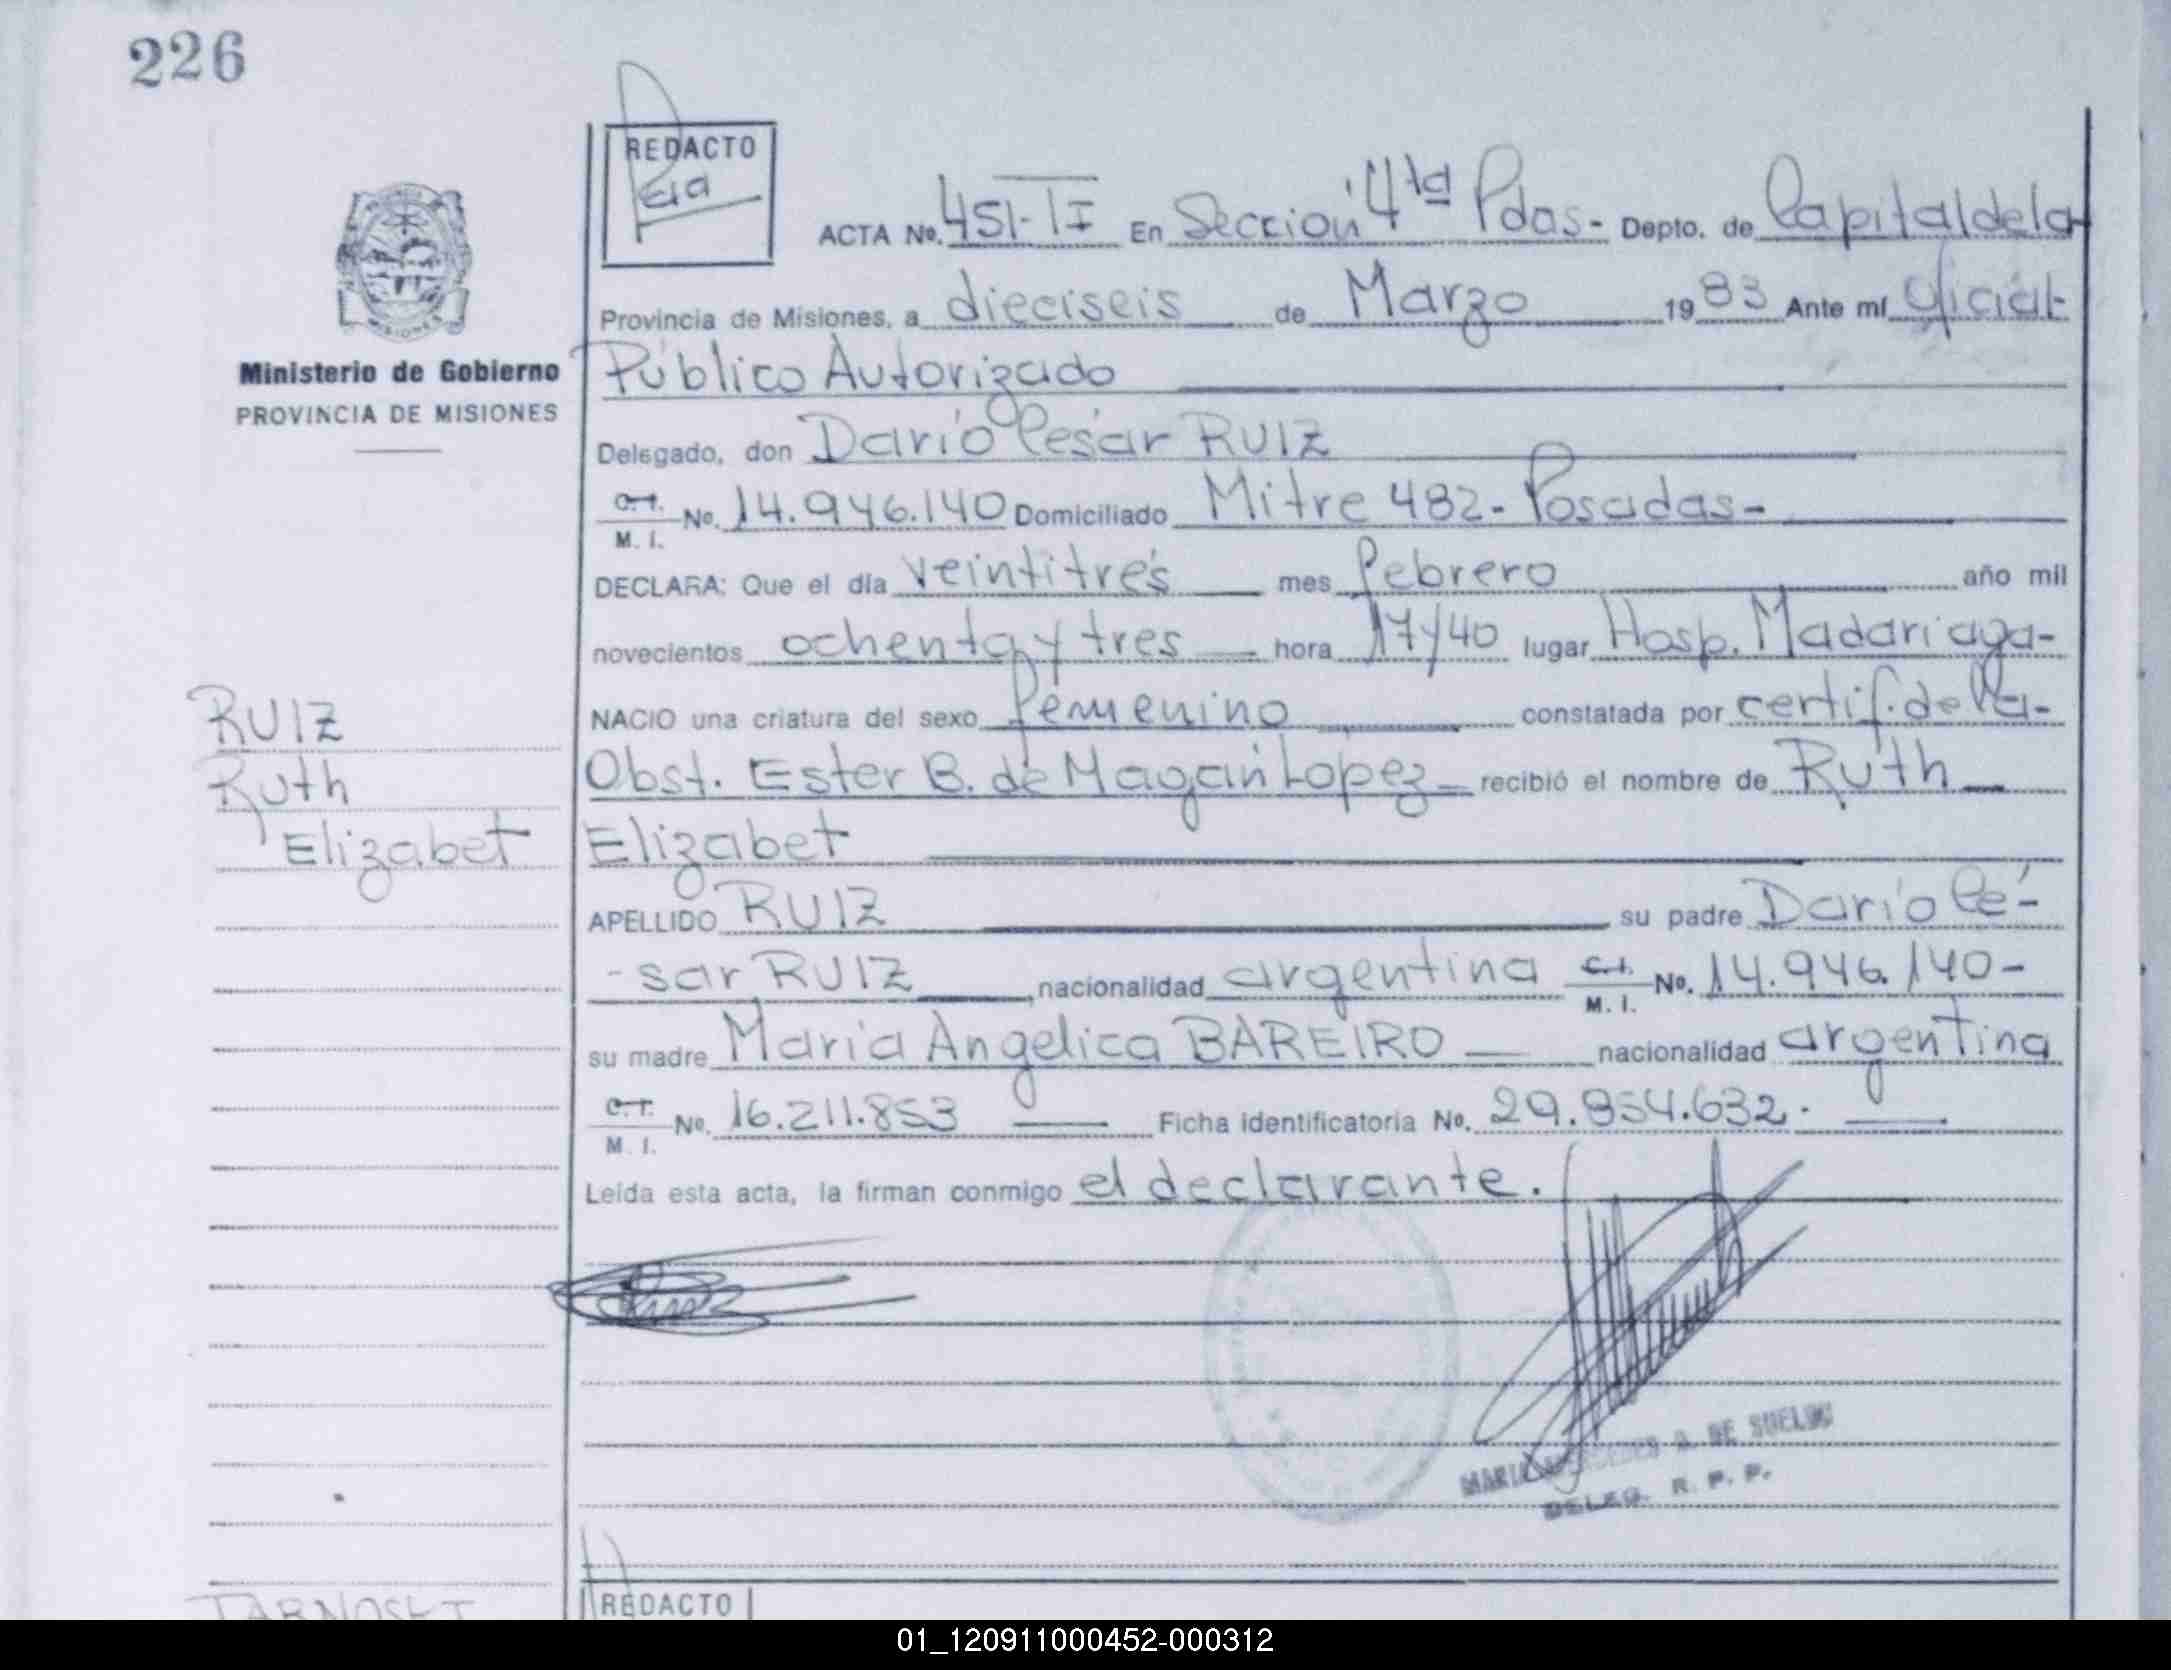 226
REDACTO
ACTA No. 451-TI En Sección 4ta Pdas- Depto. de Capital de la
Provincia de Misiones, a dieciseis de Marzo 1983 Ante mí Oficial
Ministerio de Gobierno
PROVINCIA DE MISIONES
Público Autorizado
Delegado, don Darío César RUIZ
C.I. M.I. No. 14.946.140 Domiciliado Mitre 482- Posadas-
DECLARA: Que el día veintitrés mes febrero año mil
novecientos ochenta y tres hora 17/40 lugar Hosp. Madariaga-
NACIO una criatura del sexo femenino constatada por certif. de la-
Obst. Ester B. de Magán López recibió el nombre de Ruth
Elizabet
RUIZ
Ruth
Elizabet
APELLIDO RUIZ su padre Darío Cé-
-sar RUIZ, nacionalidad argentina C.I. M.I. No. 14.946.140-
su madre María Angélica BAREIRO nacionalidad argentina
C.I. M.I. No. 16.211.853 Ficha identificatoria No. 29.854.632.
Leída esta acta, la firman conmigo el declarante.
MARIA A. DE SUELDO
DELEG. R. P. P.
REDACTO
01_120911000452-000312